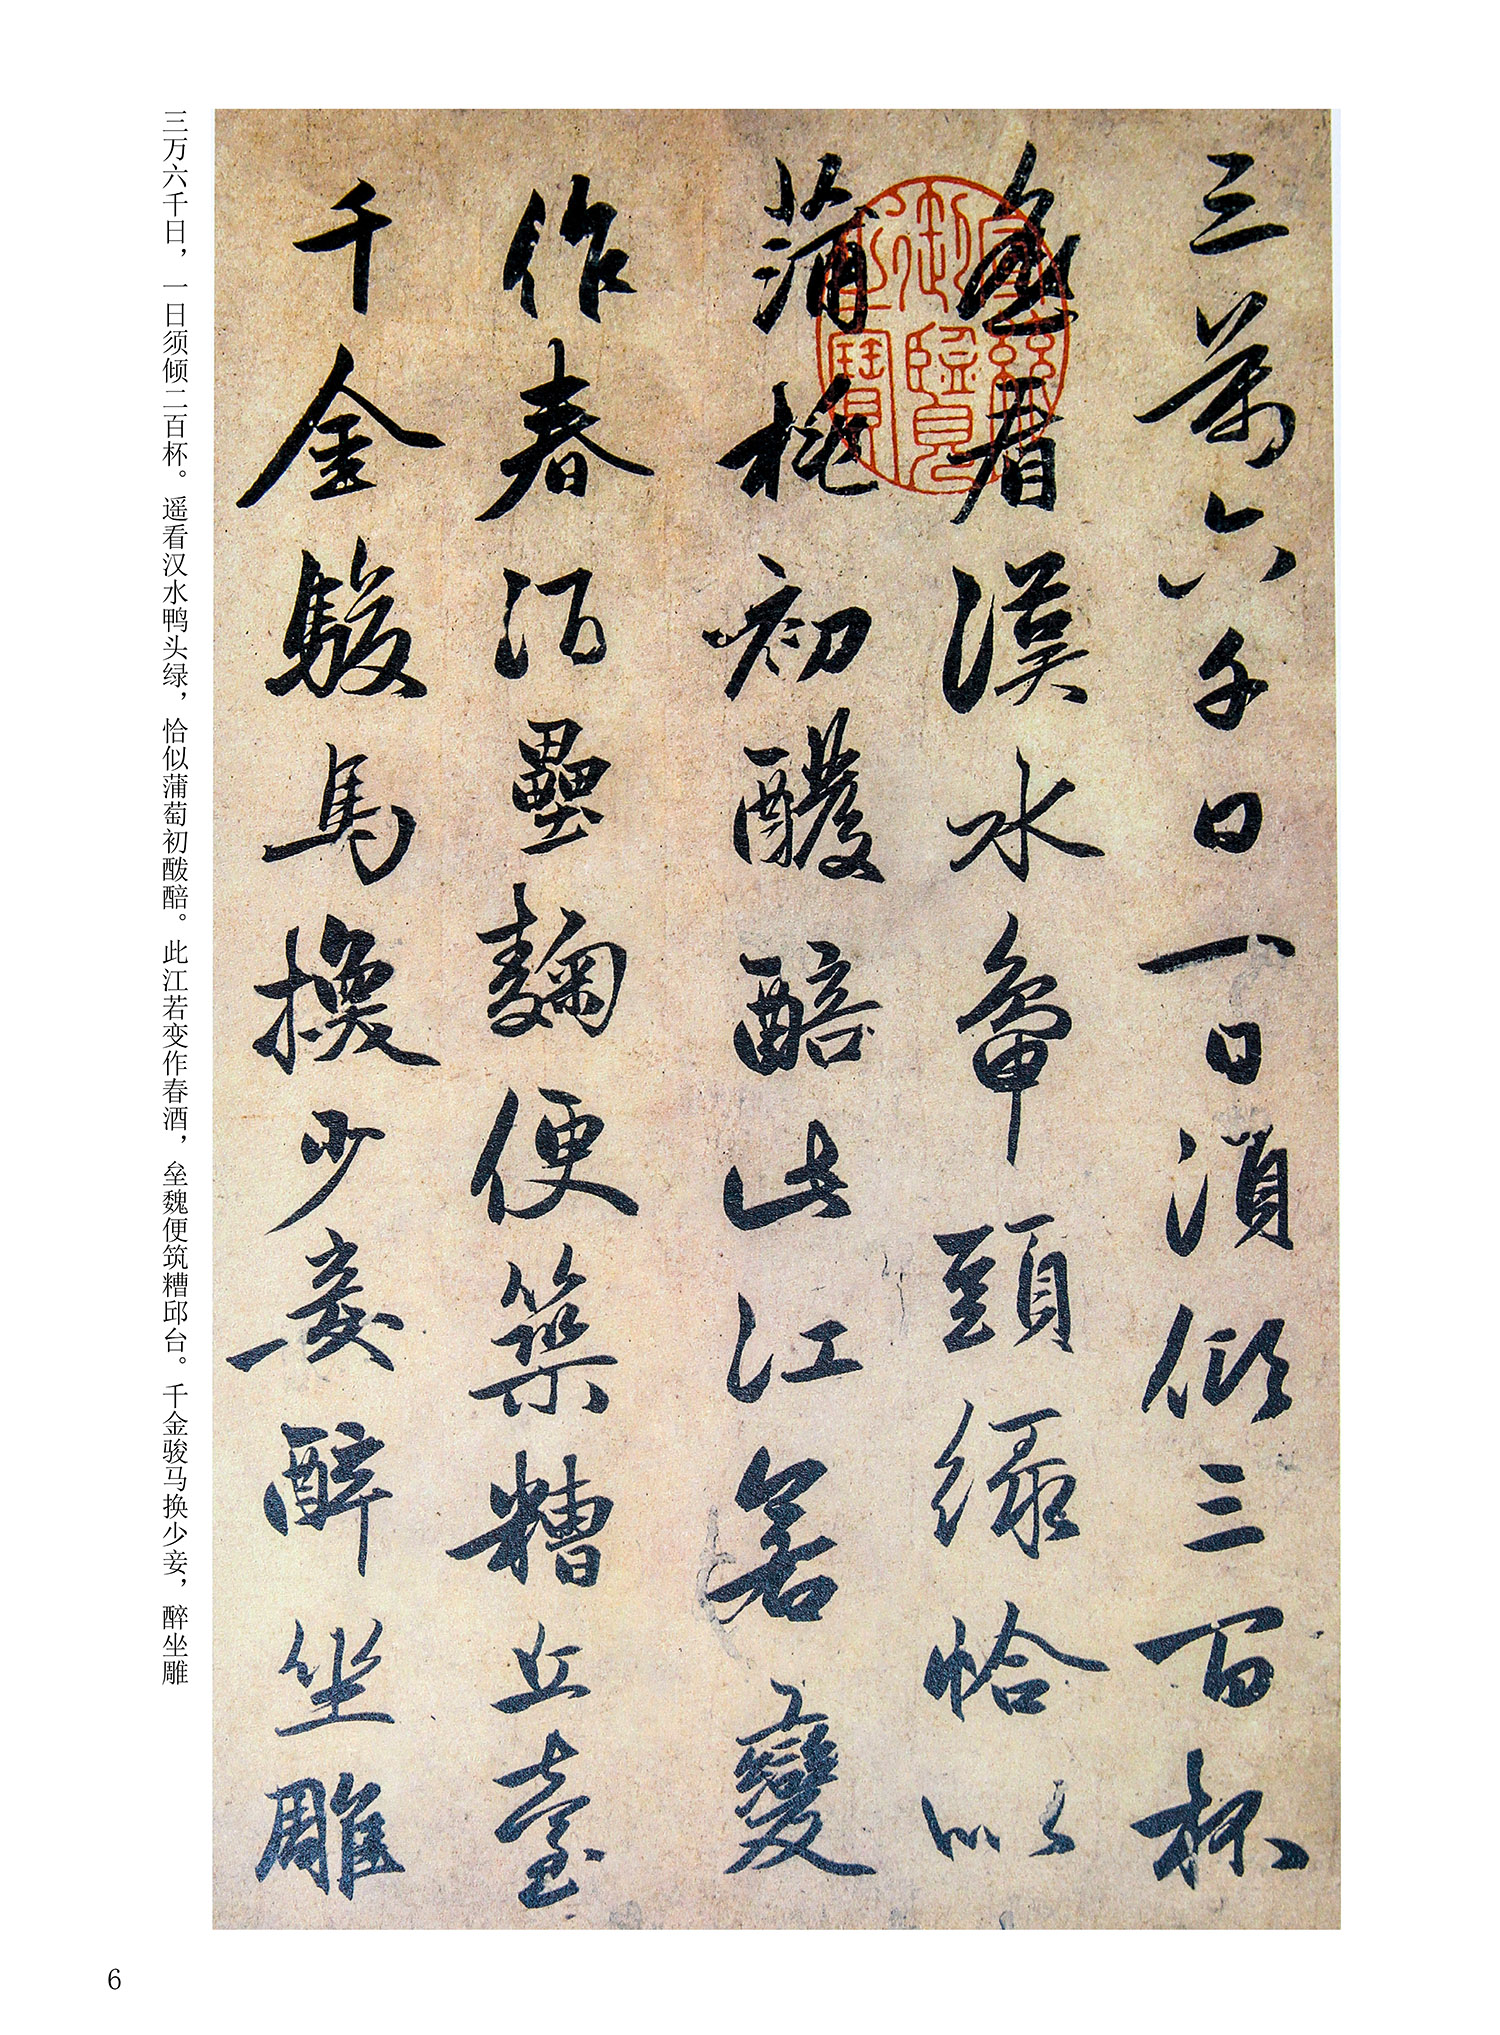 三萬六千日一日須傾三百杯
遙看漢水鴨頭綠恰似
蒲桃初醱醅此江若變
作春酒壘麴便築糟丘臺
千金駿馬換少妾醉坐雕
宣統御覽之寶
三万六千日，一日须倾二百杯。遥看汉水鸭头绿，恰似蒲萄初酦醅。此江若变作春酒，垒魏便筑糟邱台。千金骏马换少妾，醉坐雕
6